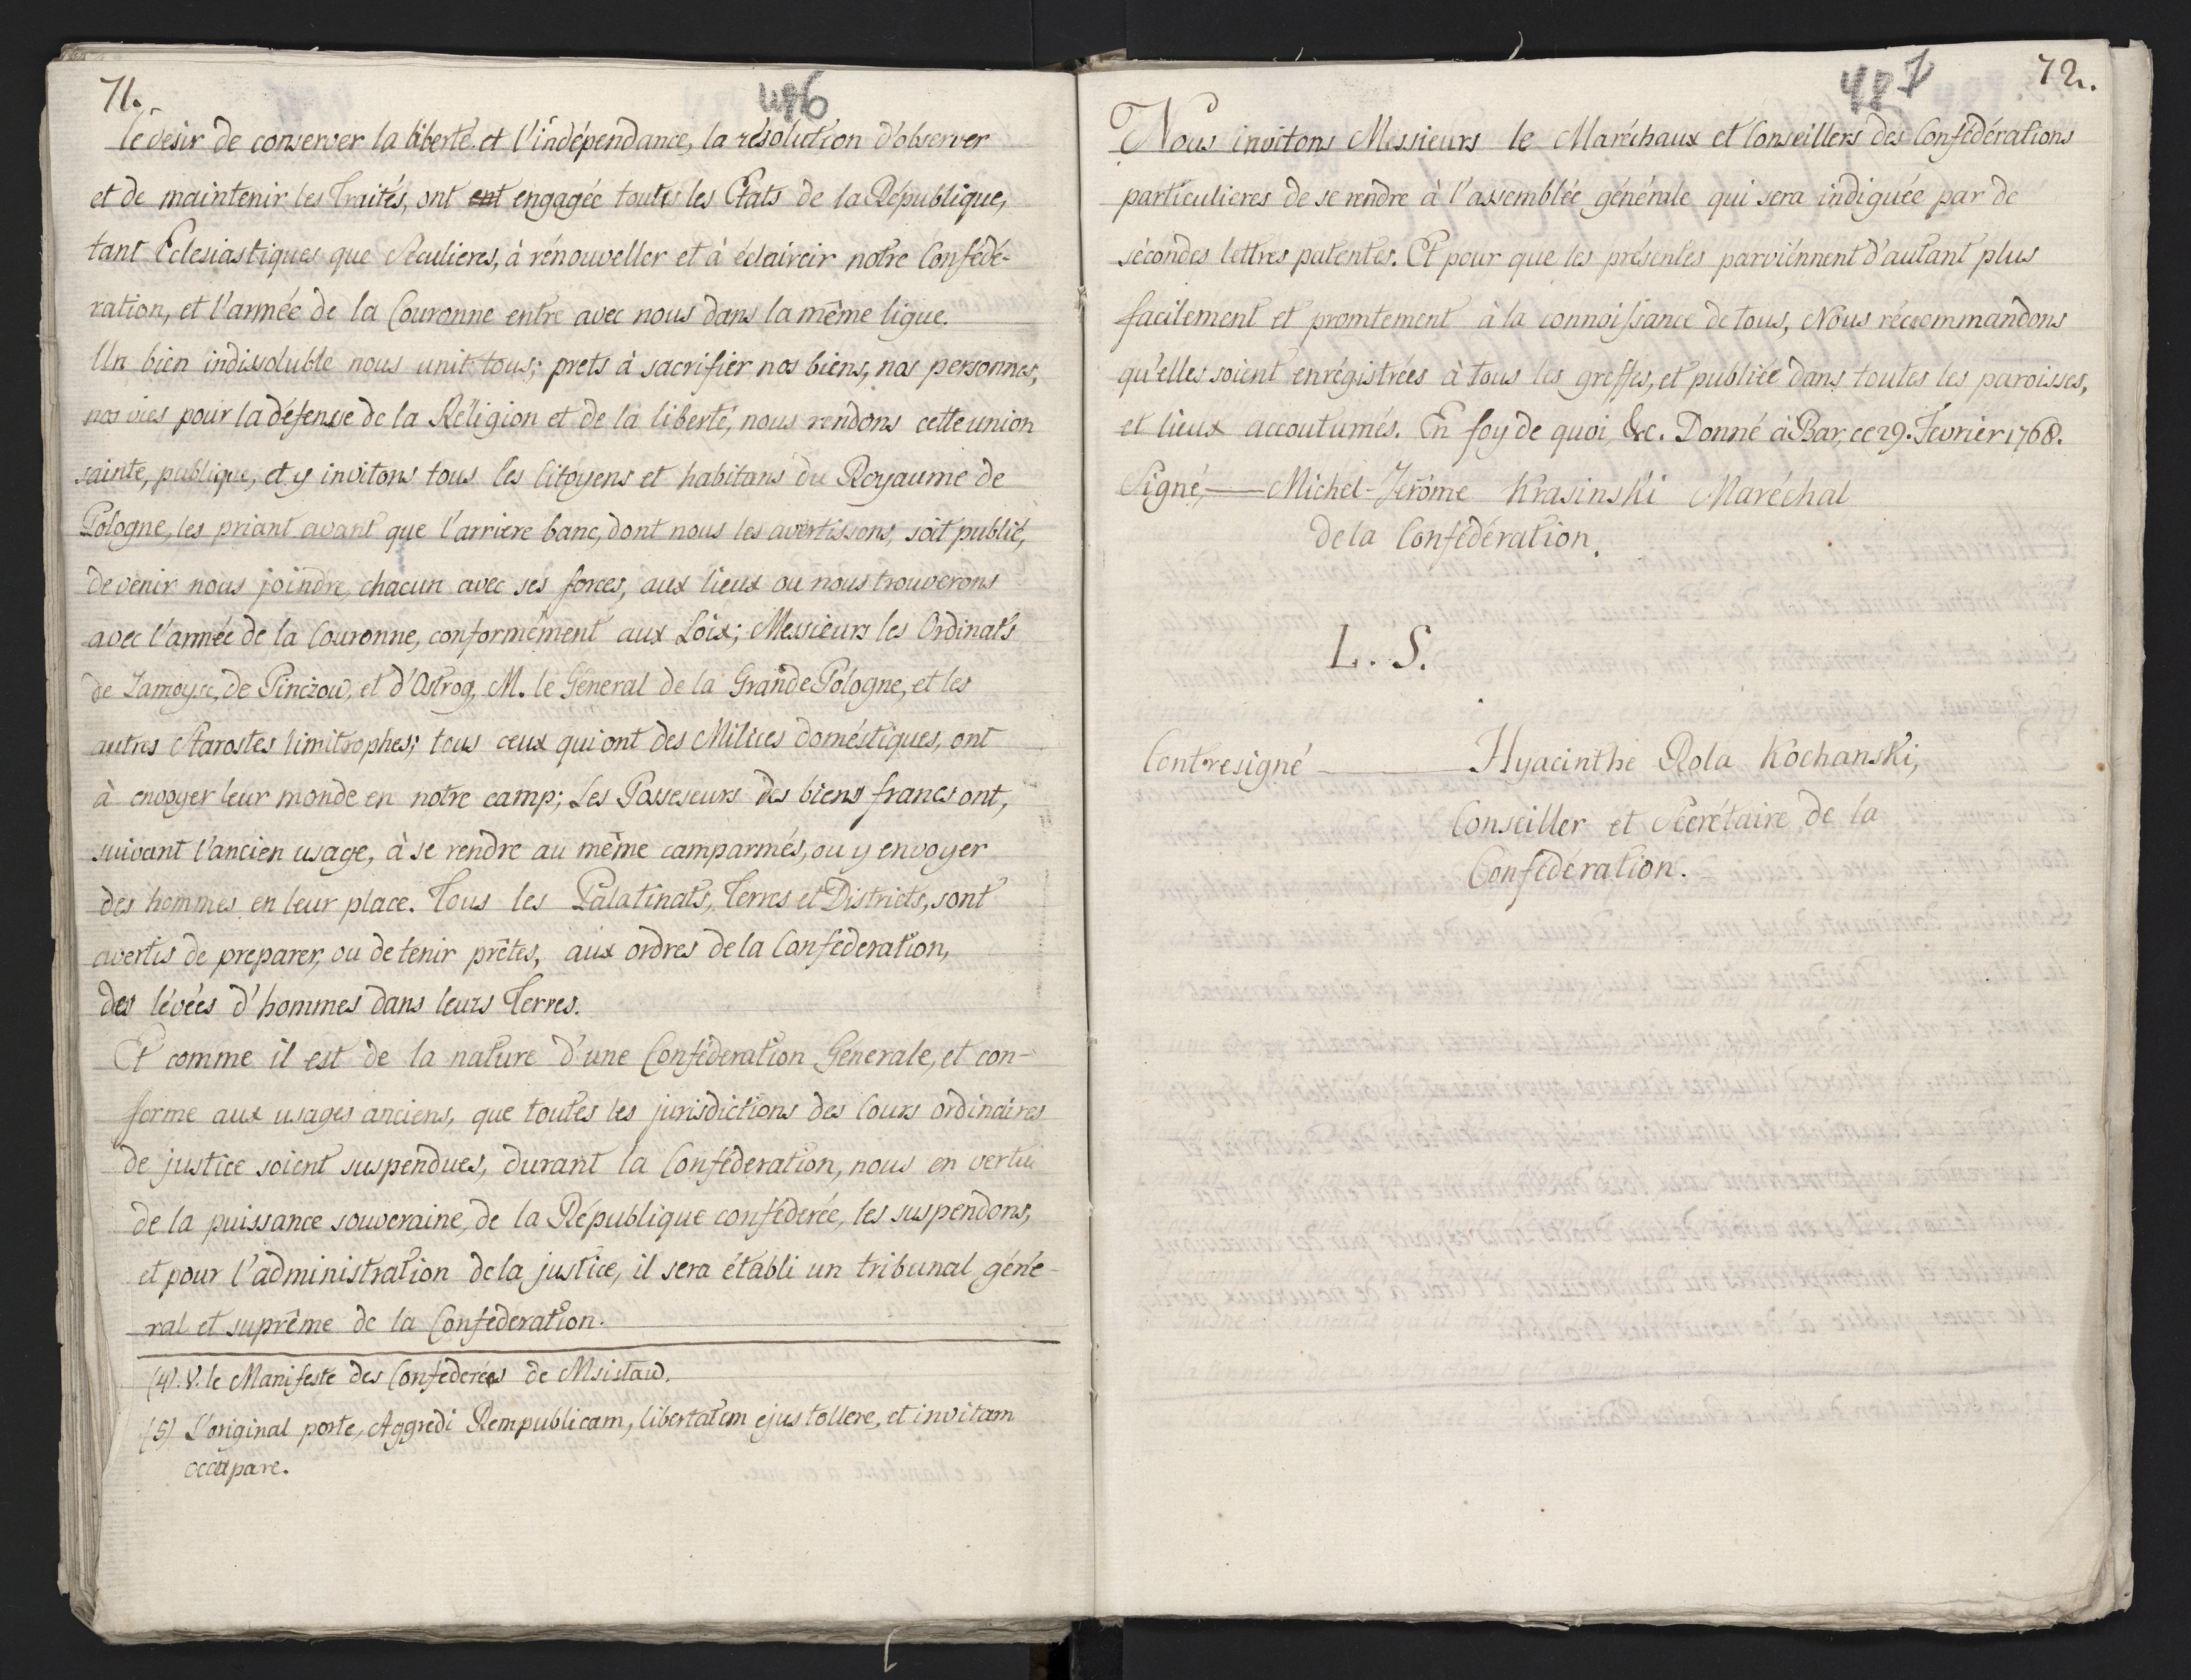 71.
486
le désir de conserver la liberté et l'indépendance, la résolution d'observer
et de maintenir les Traités, ont ent engagée toutes les États de la République,
tant Eclesiastiques que Séculieres, à rénouveller et à éclaircir notre Confédé-
ration, et l'armée de la Couronne entre avec nous dans la même ligue.
Un bien indissoluble nous unit tous; prets à sacrifier nos biens, nos personnes,
nos vies pour la défense de la Réligion et de la liberté, nous rendons cette union
sainte, publique, et y invitons tous les Citoyens et habitans du Royaume de
Pologne, les priant avant que l'arriere banc, dont nous les avertissons, soit publié,
de venir nous joindre, chacun avec ses forces, aux lieux ou nous trouverons
avec l'armée de la Couronne, conformément aux Loix; Messieurs les Ordinats
de Zamoysc, de Pinczow, et d'Ostrog, M. le Géneral de la Grande Pologne, et les
autres Starostes limitrophes; tous ceux qui ont des Milices doméstiques, ont
à envoyer leur monde en notre camp; Les Posseseurs des biens francs ont,
suivant l'ancien usage, à se rendre au même camp armés, ou y envoyer
des hommes en leur place. Tous les Palatinats, Terres et Districts, sont
avertis de preparer, ou de tenir prêtes, aux ordres de la Conféderation,
des lévées d'hommes dans leurs Terres.
Et comme il est de la nature d'une Conféderation Génerale, et con-
forme aux usages anciens, que toutes les jurisdictions des Cours ordinaires
de justice soient suspendues, durant la Conféderation, nous en vertu
de la puissance souveraine, de la République conféderée, les suspendons,
et pour l'administration de la justice, il sera établi un tribunal géné-
ral et suprême de la Conféderation.
(4). V. le Manifeste des Conféderées de Msistaw.
(5) L'original porte, Aggredi Rempublicam, libertatem ejus tollere, et invitam
occupare.
487
72.
Nous invitons Messieurs le Maréchaux et Conseillers des Confédérations
particulieres de se rendre à l'assemblée générale qui sera indiguée par de
sécondes lettres patentes. Et pour que les présentes parviénnent d'autant plus
facilement et promtement à la connoissance de tous, Nous récommandons
qu'elles soient enrégistrées à tous les greffes, et publiée dans toutes les paroisses,
et lieux accoutumés. En foy de quoi, &c. Donné à Bar, ce 29. Février 1768.
Signé, — Michel-Jerôme Krasinski Maréchal
de la Confédération.
L. S.
Contresigné — Hyacinthe Rola Kochanski,
Conseiller et Sécrétaire de la
Confédération.